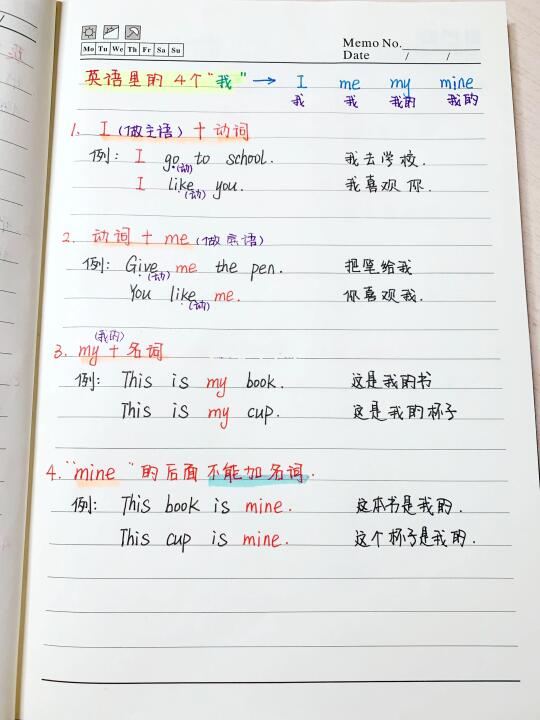 Memo No.
Mo Tu We Th Fr Sa Su
Date / /
英语里的 4个"我" → I me my mine
我 我 我的 我的
1. I (做主语) + 动词
例: I go to school. 我去学校.
(动)
I like you. 我喜欢你.
(动)
2. 动词 + me (做宾语)
例: Give me the pen. 把笔给我
(动)
You like me. 你喜欢我.
(动)
(我的)
3. my + 名词
例: This is my book. 这是我的书
This is my cup. 这是我的杯子
4. "mine" 的后面不能加名词.
例: This book is mine. 这本书是我的.
This cup is mine. 这个杯子是我的.